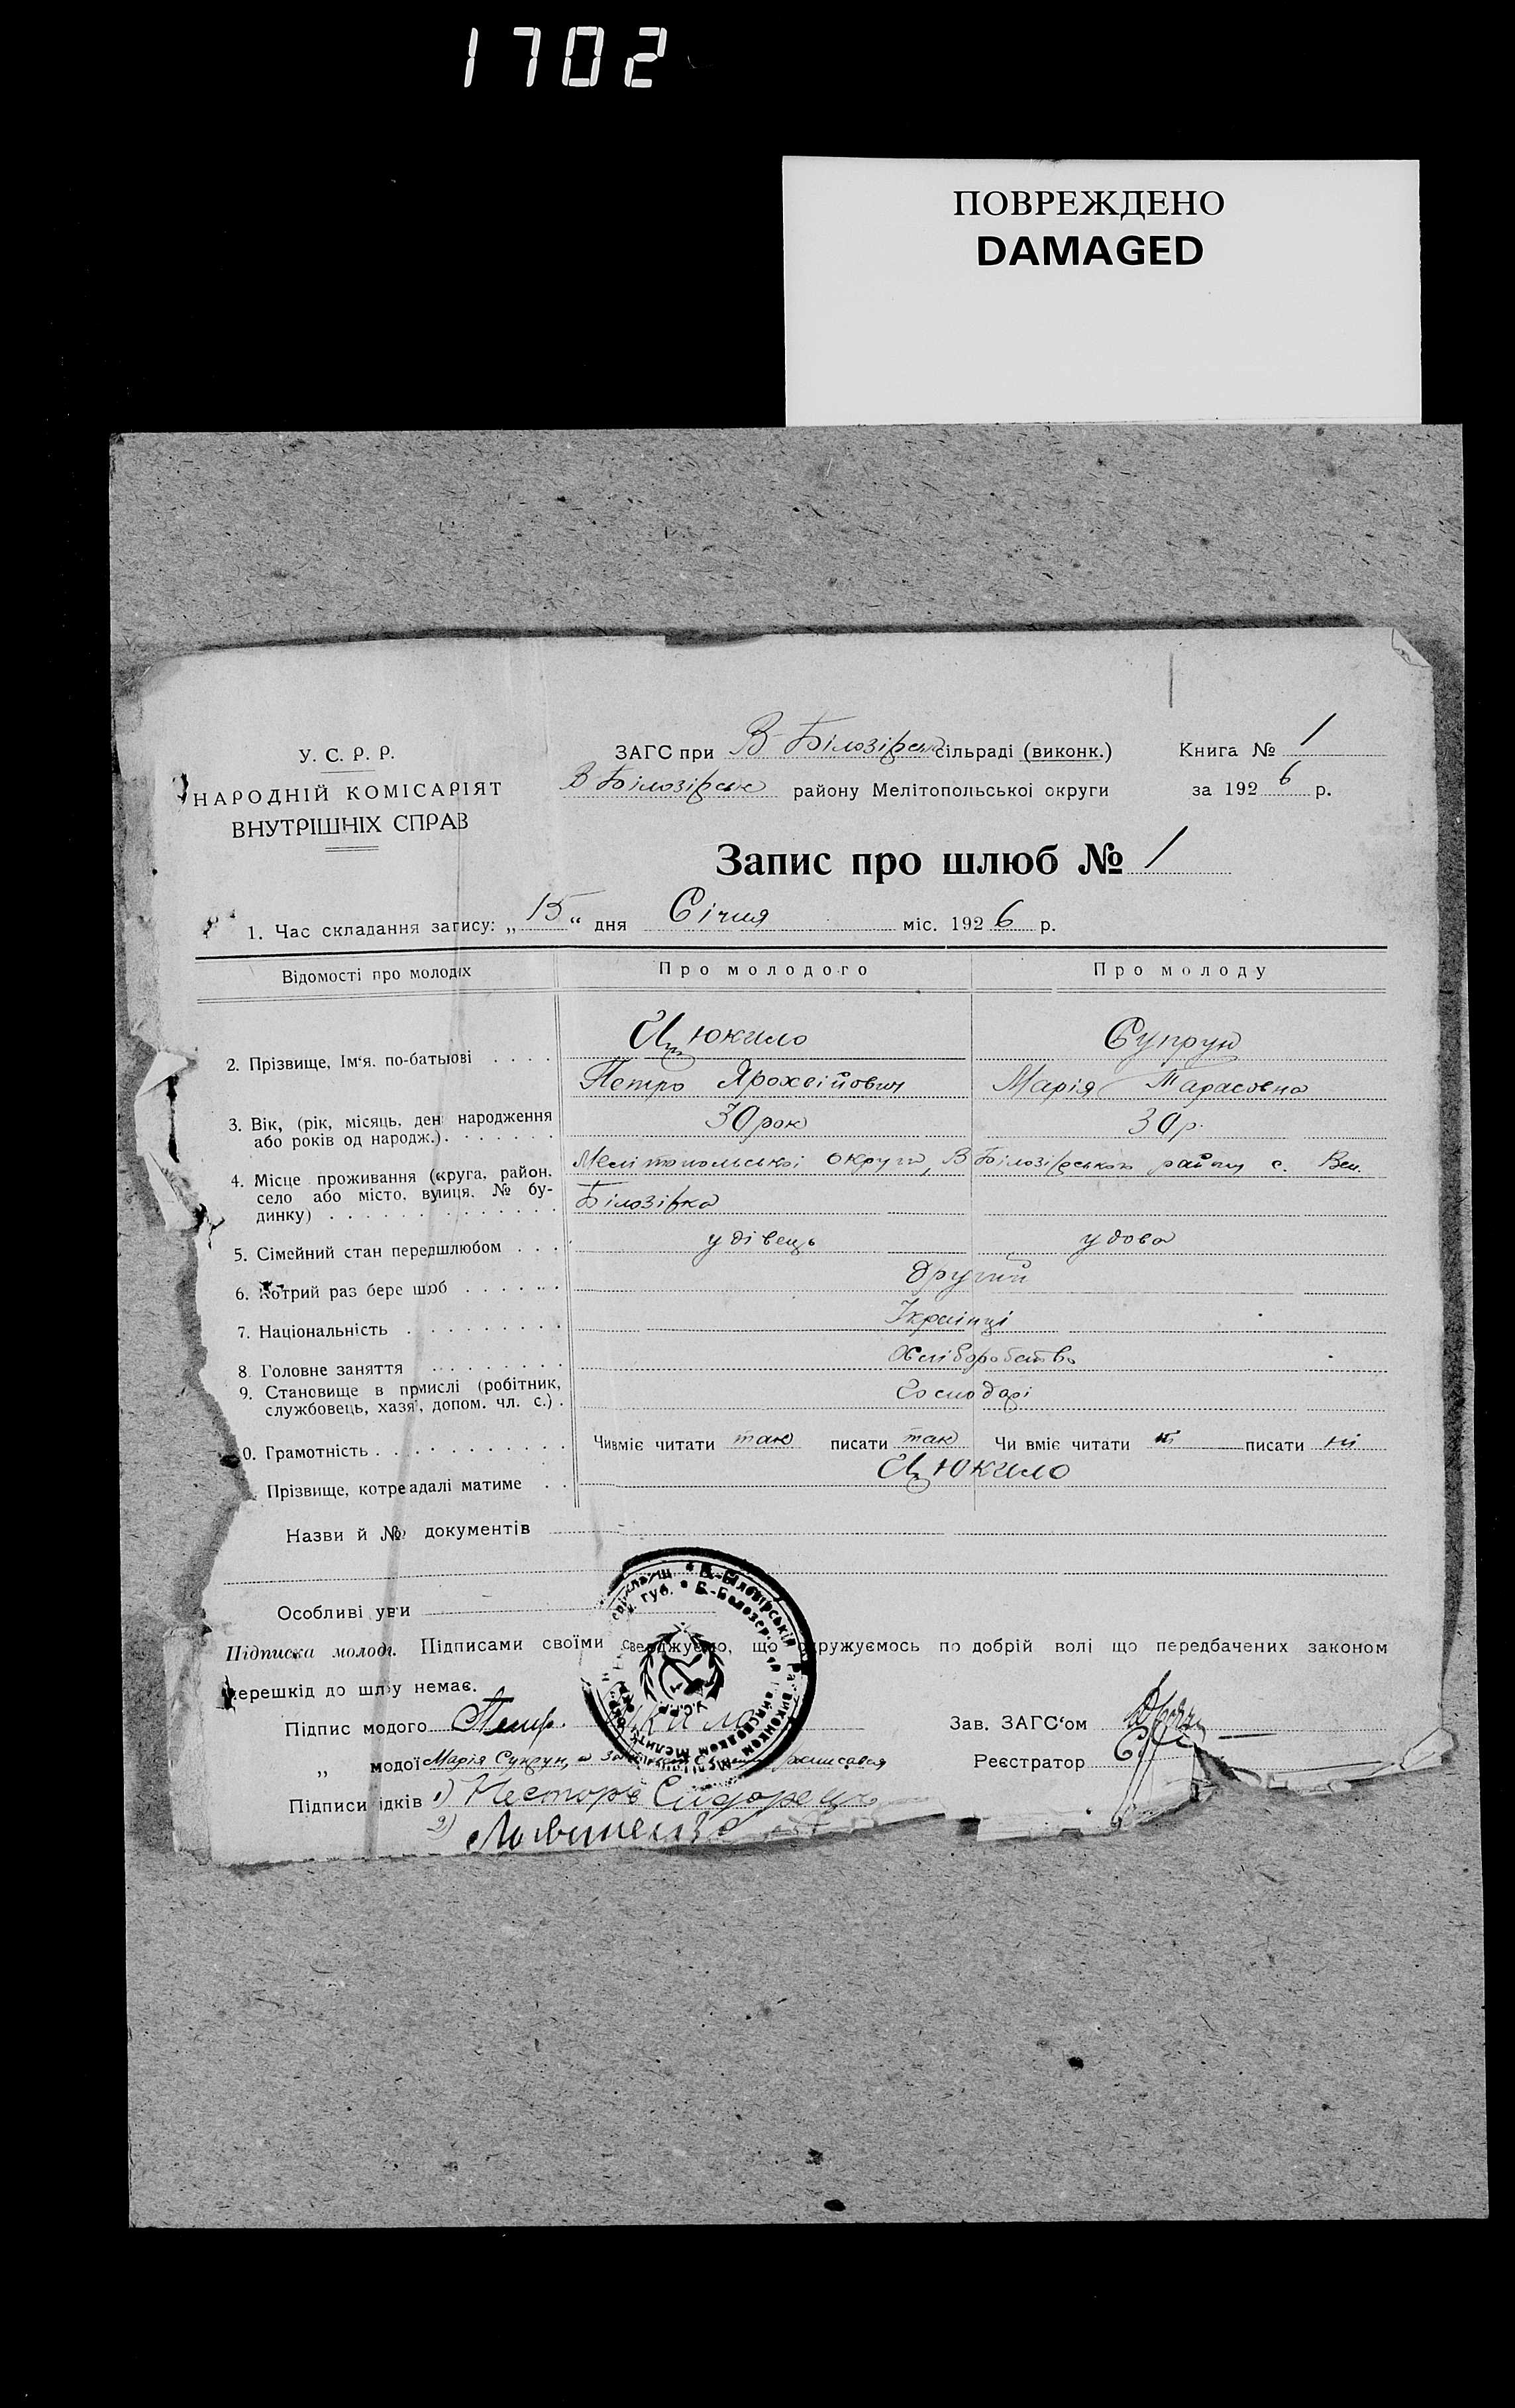 1702
ПОВРЕЖДЕНО
DAMAGED
У. С. Р. Р.
НАРОДНІЙ КОМІСАРІЯТ
ВНУТРІШНІХ СПРАВ
ЗАГС при В-Білозірськ сільраді (виконк.) Книга № 1
В Білозірськ району Мелітопольськоі округи за 192 6 р.
Запис про шлюб № 1
1. Час складання запису: „ 15 “ дня Січня міс. 192 6 р.
Відомості про молодіх Про молодого Про молоду
Цюкило Супрун
2. Прізвище, Ім‘я. по-батьюві
Петро Ярохвійович Марія Тарасовна
3. Вік, (рік, місяць, ден народження
або років од народж.). 30 рок 30 р.
4. Місце проживання (круга, район, Мелітопольськоі округи, В Білозірського району с. Вел.
село або місто, вулиця, № бу-
динку) Білозірка
5. Сімейний стан передшлюбом удівець удова
6. Котрий раз бере шюб другий
7. Національність Українці
8. Головне заняття Хліборобство
9. Становище в прмислі (робітник,
службовець, хазя, допом. чл. с.). Господарі
0. Грамотність Чи вміє читати так писати так Чи вміє читати ні писати ні
Прізвище, котре адалі матиме Цюкило
Назви й № документів
Особливі уви
Підписка молоді. Підписами своїми сверджуємо, що одружуємось по добрій волі що передбачених законом
перешкід до шлу немає.
Підпис модого Петр. Цюкило Зав. ЗАГС‘ом
„ модої Марія Супрун, а Реєстратор
Підписи ідків 1) Несторъ Сидорець
2)